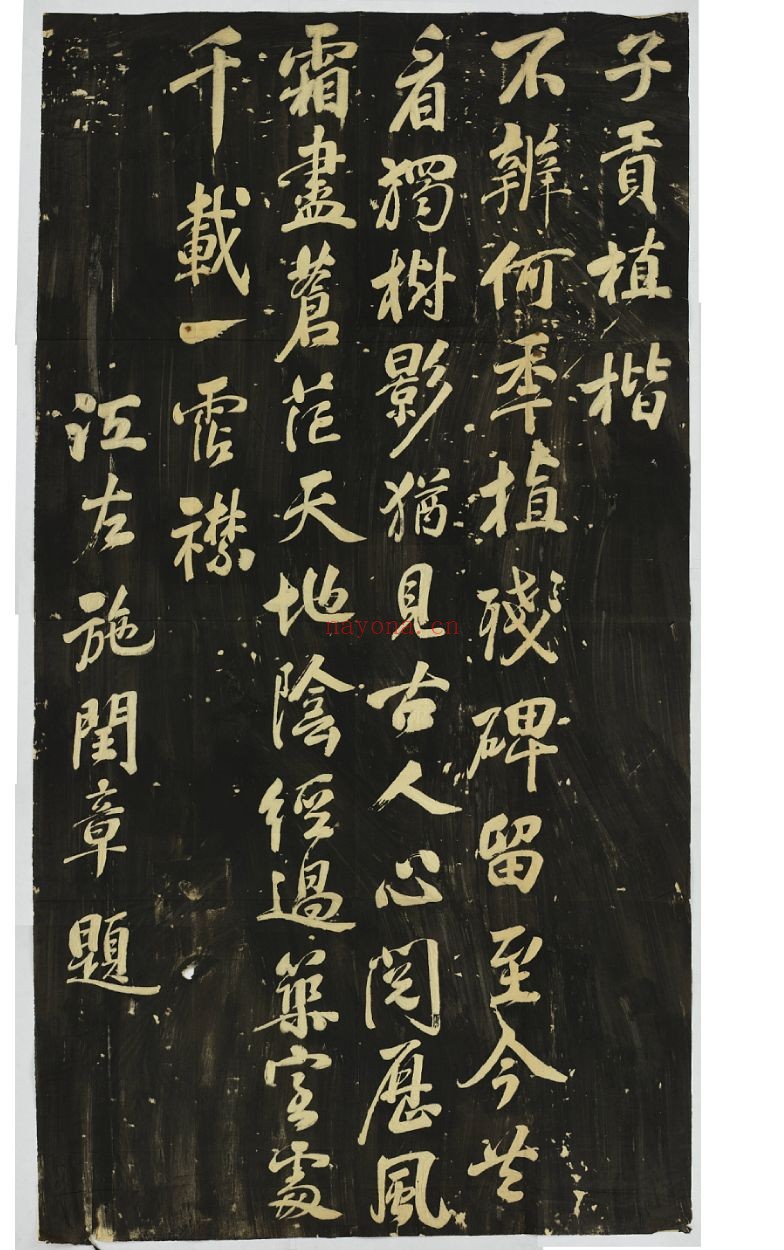 子貢植楷
不辨何年植殘碑留至今共
看獨樹影猶見古人心閱歷風
霜盡蒼茫天地陰經過築室處
千載一霑襟
江左施閏章題
nayona.cn